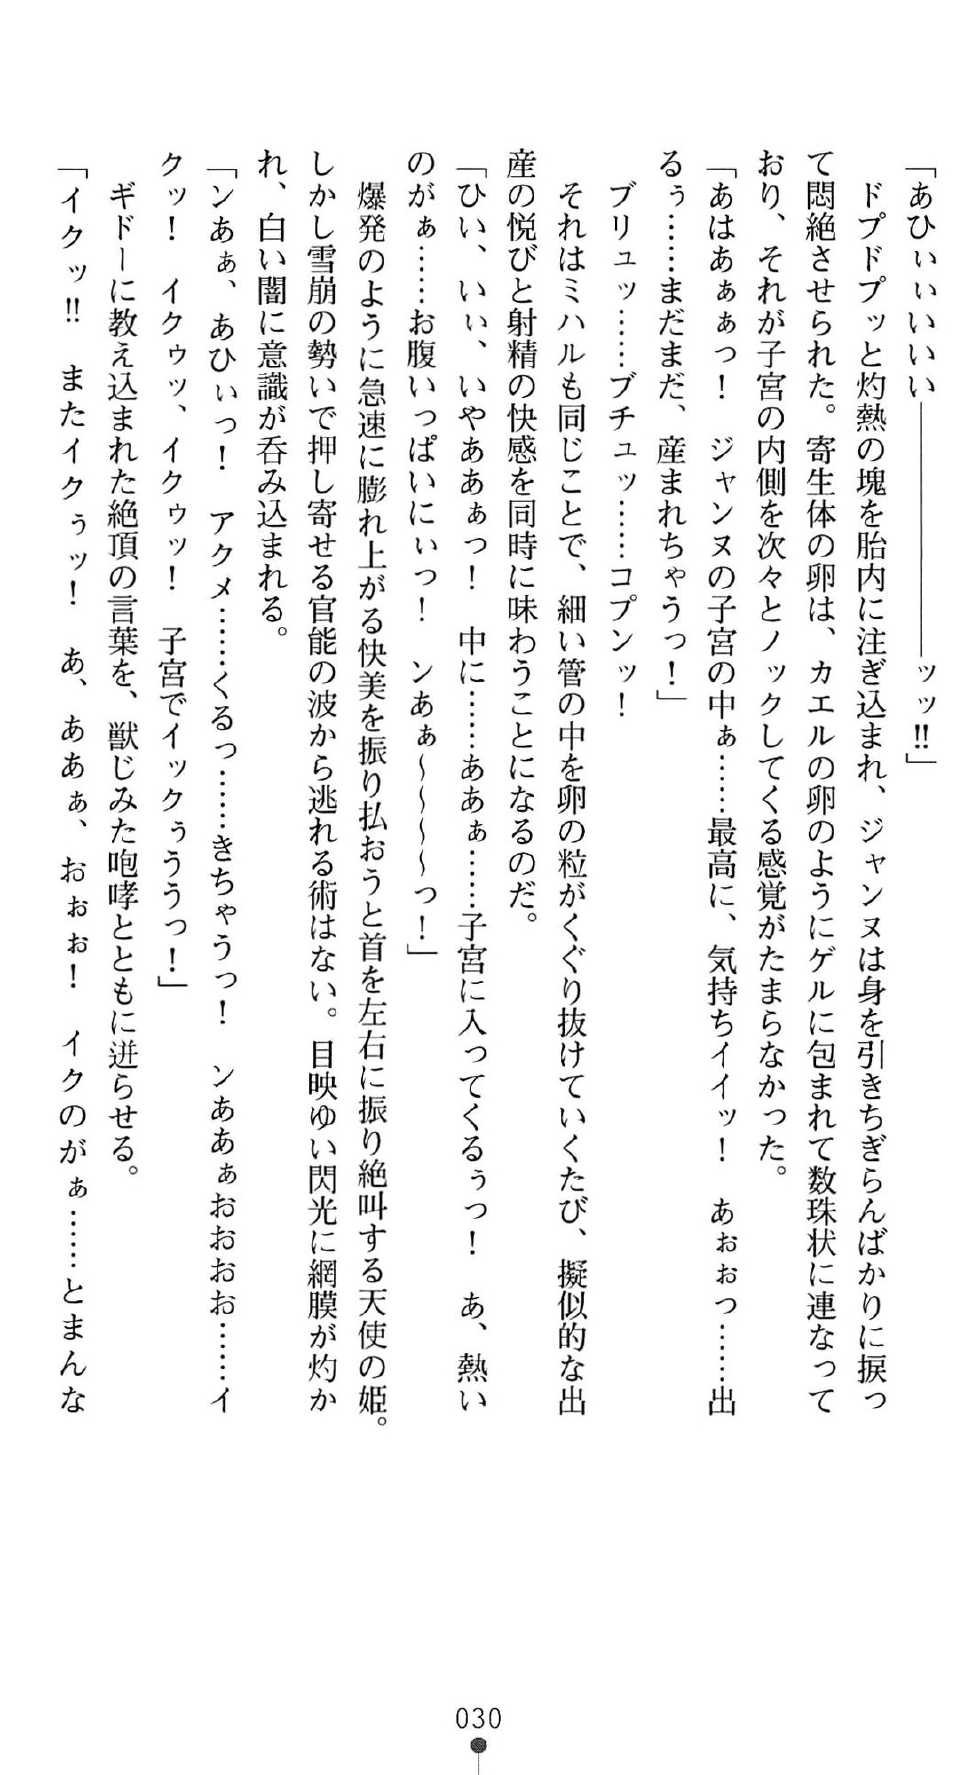 「あひぃぃいいい――――――――ッッ‼」
　ドプドプッと灼熱の塊を胎内に注ぎ込まれ、ジャンヌは身を引きちぎらんばかりに捩っ
て悶絶させられた。寄生体の卵は、カエルの卵のようにゲルに包まれて数珠状に連なって
おり、それが子宮の内側を次々とノックしてくる感覚がたまらなかった。
「あはあぁぁっ！　ジャンヌの子宮の中ぁ……最高に、気持ちイイッ！　あぉぉっ……出
るぅ……まだまだ、産まれちゃうっ！」
　ブリュッ……ブチュッ……コプンッ！
　それはミハルも同じことで、細い管の中を卵の粒がくぐり抜けていくたび、擬似的な出
産の悦びと射精の快感を同時に味わうことになるのだ。
「ひい、いぃ、いやああぁっ！　中に……ああぁ……子宮に入ってくるぅっ！　あ、熱い
のがぁ……お腹いっぱいにぃっ！　ンあぁ～～～～っ！」
　爆発のように急速に膨れ上がる快美を振り払おうと首を左右に振り絶叫する天使の姫。
しかし雪崩の勢いで押し寄せる官能の波から逃れる術はない。目映ゆい閃光に網膜が灼か
れ、白い闇に意識が呑み込まれる。
「ンあぁ、あひぃっ！　アクメ……くるっ……きちゃうっ！　ンああぁおおおお……イ
クッ！　イクゥッ、イクゥッ！　子宮でイックぅううっ！」
　ギドーに教え込まれた絶頂の言葉を、獣じみた咆哮とともに迸らせる。
「イクッ‼　またイクぅッ！　あ、ああぁ、おぉぉ！　イクのがぁ……とまんな
030